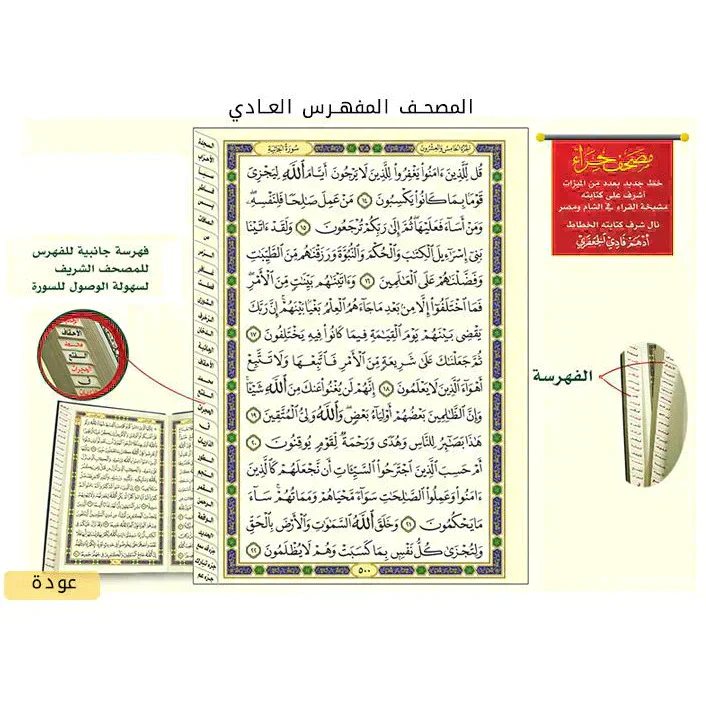 المصحف المفهرس العادي
الجزء الخامس والعشرون
سورة الجاثية
قُل لِّلَّذِينَ ءَامَنُوا۟ يَغْفِرُوا۟ لِلَّذِينَ لَا يَرْجُونَ أَيَّامَ ٱللَّهِ لِيَجْزِىَ
قَوْمًۢا بِمَا كَانُوا۟ يَكْسِبُونَ ١٤ مَنْ عَمِلَ صَٰلِحًا فَلِنَفْسِهِۦ ۖ
وَمَنْ أَسَآءَ فَعَلَيْهَا ۖ ثُمَّ إِلَىٰ رَبِّكُمْ تُرْجَعُونَ ١٥ وَلَقَدْ ءَاتَيْنَا
بَنِىٓ إِسْرَٰٓءِيلَ ٱلْكِتَٰبَ وَٱلْحُكْمَ وَٱلنُّبُوَّةَ وَرَزَقْنَٰهُم مِّنَ ٱلطَّيِّبَٰتِ
وَفَضَّلْنَٰهُمْ عَلَى ٱلْعَٰلَمِينَ ١٦ وَءَاتَيْنَٰهُم بَيِّنَٰتٍ مِّنَ ٱلْأَمْرِ ۖ
فَمَا ٱخْتَلَفُوٓا۟ إِلَّا مِنۢ بَعْدِ مَا جَآءَهُمُ ٱلْعِلْمُ بَغْيًۢا بَيْنَهُمْ ۚ إِنَّ رَبَّكَ
يَقْضِى بَيْنَهُمْ يَوْمَ ٱلْقِيَٰمَةِ فِيمَا كَانُوا۟ فِيهِ يَخْتَلِفُونَ ١٧
ثُمَّ جَعَلْنَٰكَ عَلَىٰ شَرِيعَةٍ مِّنَ ٱلْأَمْرِ فَٱتَّبِعْهَا وَلَا تَتَّبِعْ
أَهْوَآءَ ٱلَّذِينَ لَا يَعْلَمُونَ ١٨ إِنَّهُمْ لَن يُغْنُوا۟ عَنكَ مِنَ ٱللَّهِ شَيْـًٔا ۚ
وَإِنَّ ٱلظَّٰلِمِينَ بَعْضُهُمْ أَوْلِيَآءُ بَعْضٍ ۖ وَٱللَّهُ وَلِىُّ ٱلْمُتَّقِينَ ١٩
هَٰذَا بَصَٰٓئِرُ لِلنَّاسِ وَهُدًى وَرَحْمَةٌ لِّقَوْمٍ يُوقِنُونَ ٢٠
أَمْ حَسِبَ ٱلَّذِينَ ٱجْتَرَحُوا۟ ٱلسَّيِّـَٔاتِ أَن نَّجْعَلَهُمْ كَٱلَّذِينَ
ءَامَنُوا۟ وَعَمِلُوا۟ ٱلصَّٰلِحَٰتِ سَوَآءً مَّحْيَاهُمْ وَمَمَاتُهُمْ ۚ سَآءَ
مَا يَحْكُمُونَ ٢١ وَخَلَقَ ٱللَّهُ ٱلسَّمَٰوَٰتِ وَٱلْأَرْضَ بِٱلْحَقِّ
وَلِتُجْزَىٰ كُلُّ نَفْسٍۭ بِمَا كَسَبَتْ وَهُمْ لَا يُظْلَمُونَ ٢٢
٥٠٠
مصحف حراء
خط جديد بعدد من الميزات
أشرف على كتابته
مشيخة القراء في الشام ومصر
نال شرف كتابته الخطاط
أدهم فادي الجعفري
الفهرسة
فهرسة جانبية للفهرس
للمصحف الشريف
لسهولة الوصول للسورة
الأحقاف
محمد
الفتح
الحجرات
ق
عودة